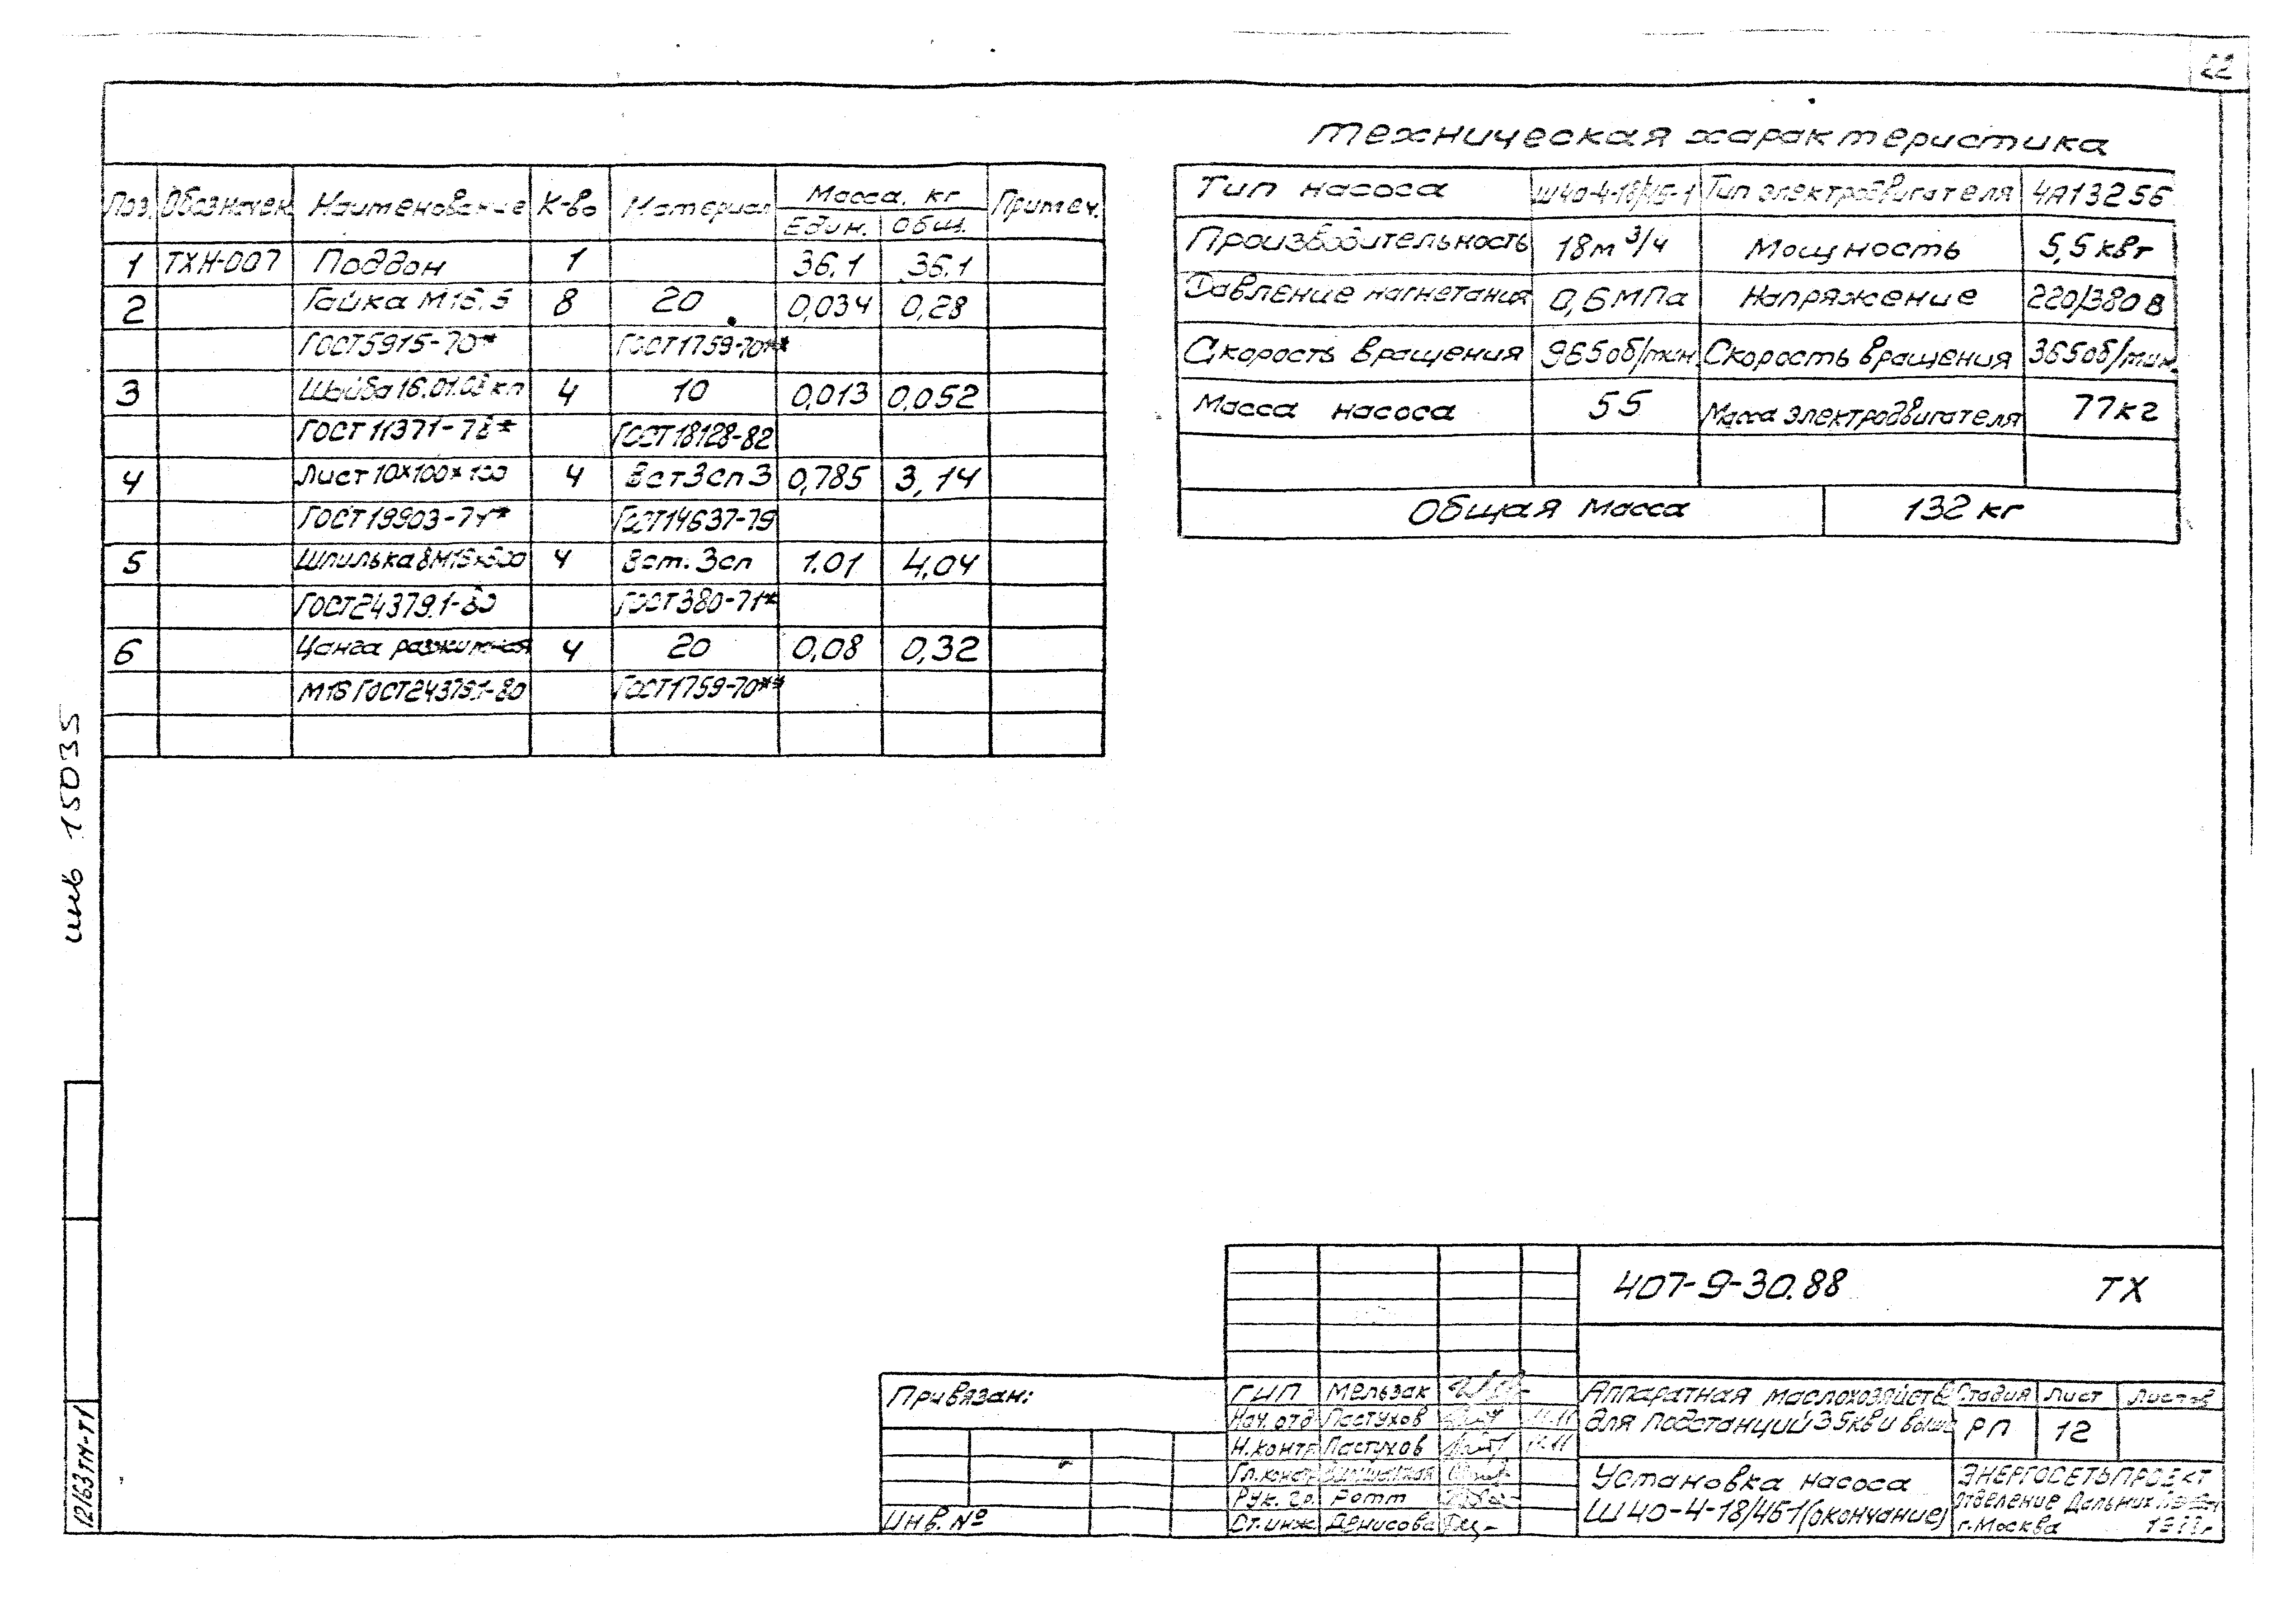 22
Поз. Обозначен. Наименование К-во Материал Масса, кг Примеч.
Един. Общ.
1 ТХН-007 Поддон 1 36.1 36.1
2 Гайка М16.5 8 20 0,034 0,28
ГОСТ5915-70* ГОСТ1759-70**
3 Шайба 16.01.08кп 4 10 0,013 0,052
ГОСТ 11371-78* ГОСТ18128-82
4 Лист 10х100х100 4 Вст3сп3 0,785 3,14
ГОСТ19903-74* ГОСТ14637-79
5 Шпилька 8М16х600 4 Вст.3сп 1.01 4,04
ГОСТ24379.1-80 ГОСТ380-71*
6 Цанга разжимная 4 20 0,08 0,32
М16 ГОСТ24379.1-80 ГОСТ1759-70**
Техническая характеристика
Тип насоса Ш40-4-18/4Б-1 Тип электродвигателя 4А132S6
Производительность 18м³/ч Мощность 5,5 квт
Давление нагнетания 0,6 МПа Напряжение 220/380 в
Скорость вращения 965об/мин Скорость вращения 365об/мин.
Масса насоса 55 Масса электродвигателя 77кг
Общая масса 132 кг
инв 15035
12163ТМ-Т1
407-9-30.88 ТХ
Привязан:
Инв. №
ГИП Мельзак
Нач. отд Пастухов 11.11
Н.контр Пастухов 11.11
Гл.констр
Рук. гр. Ротт
Ст.инж. Денисова
Аппаратная маслохозяйств
для подстанций 35кв и выше
Стадия Лист Листов
РП 12
Установка насоса
Ш40-4-18/4Б-1(окончание)
ЭНЕРГОСЕТЬПРОЕКТ
Отделение Дальних
г. Москва